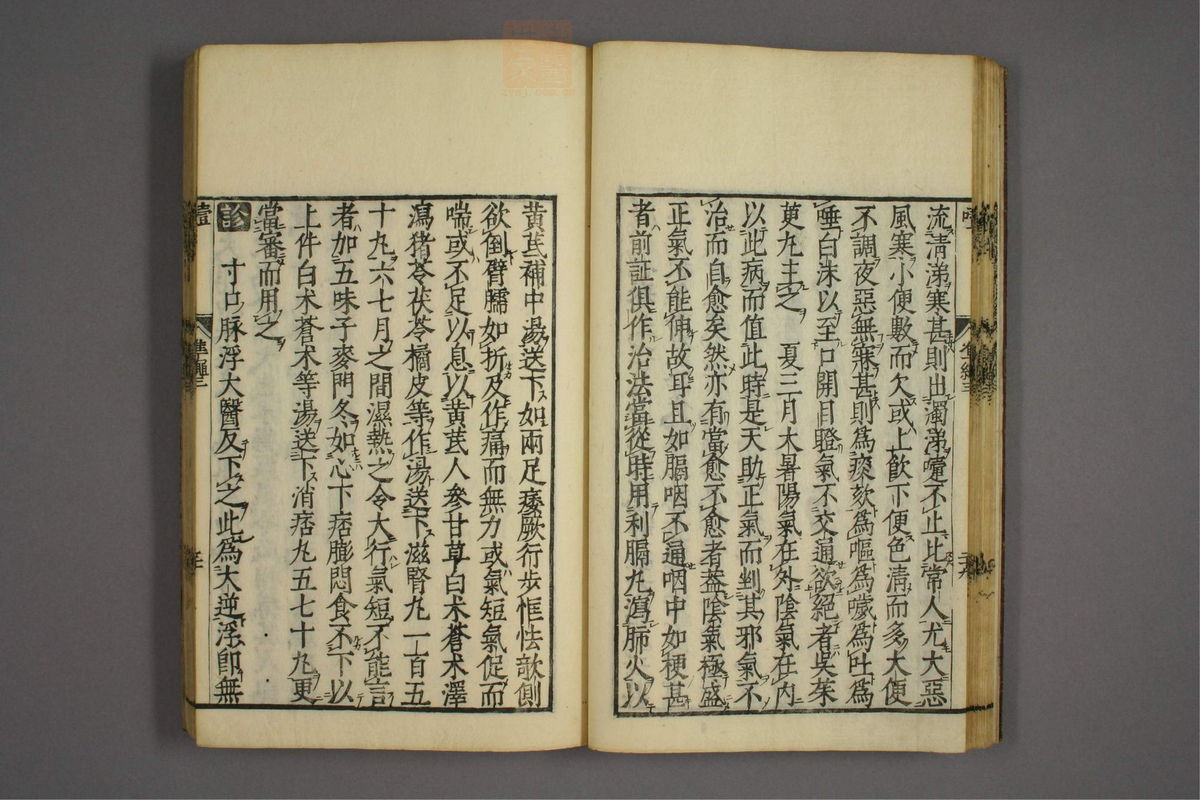 流清涕寒甚則出濁涕嚏不止比常人尤大惡
風寒小便數而欠或上飲下便色清而多大便
不調夜惡無寐甚則為痰欬為嘔為噦為吐為
唾白沫以至口開目瞪氣不交通欲絕者吳茱
萸丸主之　夏三月大暑陽氣在外陰氣在內
以此病而值此時是天助正氣而剉其邪氣不
治而自愈矣然亦有當愈不愈者蓋陰氣極盛
正氣不能伸故耳且如膈咽不通咽中如梗甚
者前証俱作治法當從時用利膈丸瀉肺火以
黃芪補中湯送下如兩足痿厥行步恇怯欹側
欲倒臂臑如折及作痛而無力或氣短氣促而
喘或不足以息以黃芪人參甘草白朮蒼朮澤
瀉猪苓茯苓橘皮等作湯送下滋腎丸一百五
十丸六七月之間濕熱之令大行氣短不能言
者加五味子麥門冬如心下痞膨悶食不下以
上件白朮蒼朮等湯送下消痞丸五七十丸更
當審而用之
診　寸口脉浮大醫反下之此為大逆浮即無